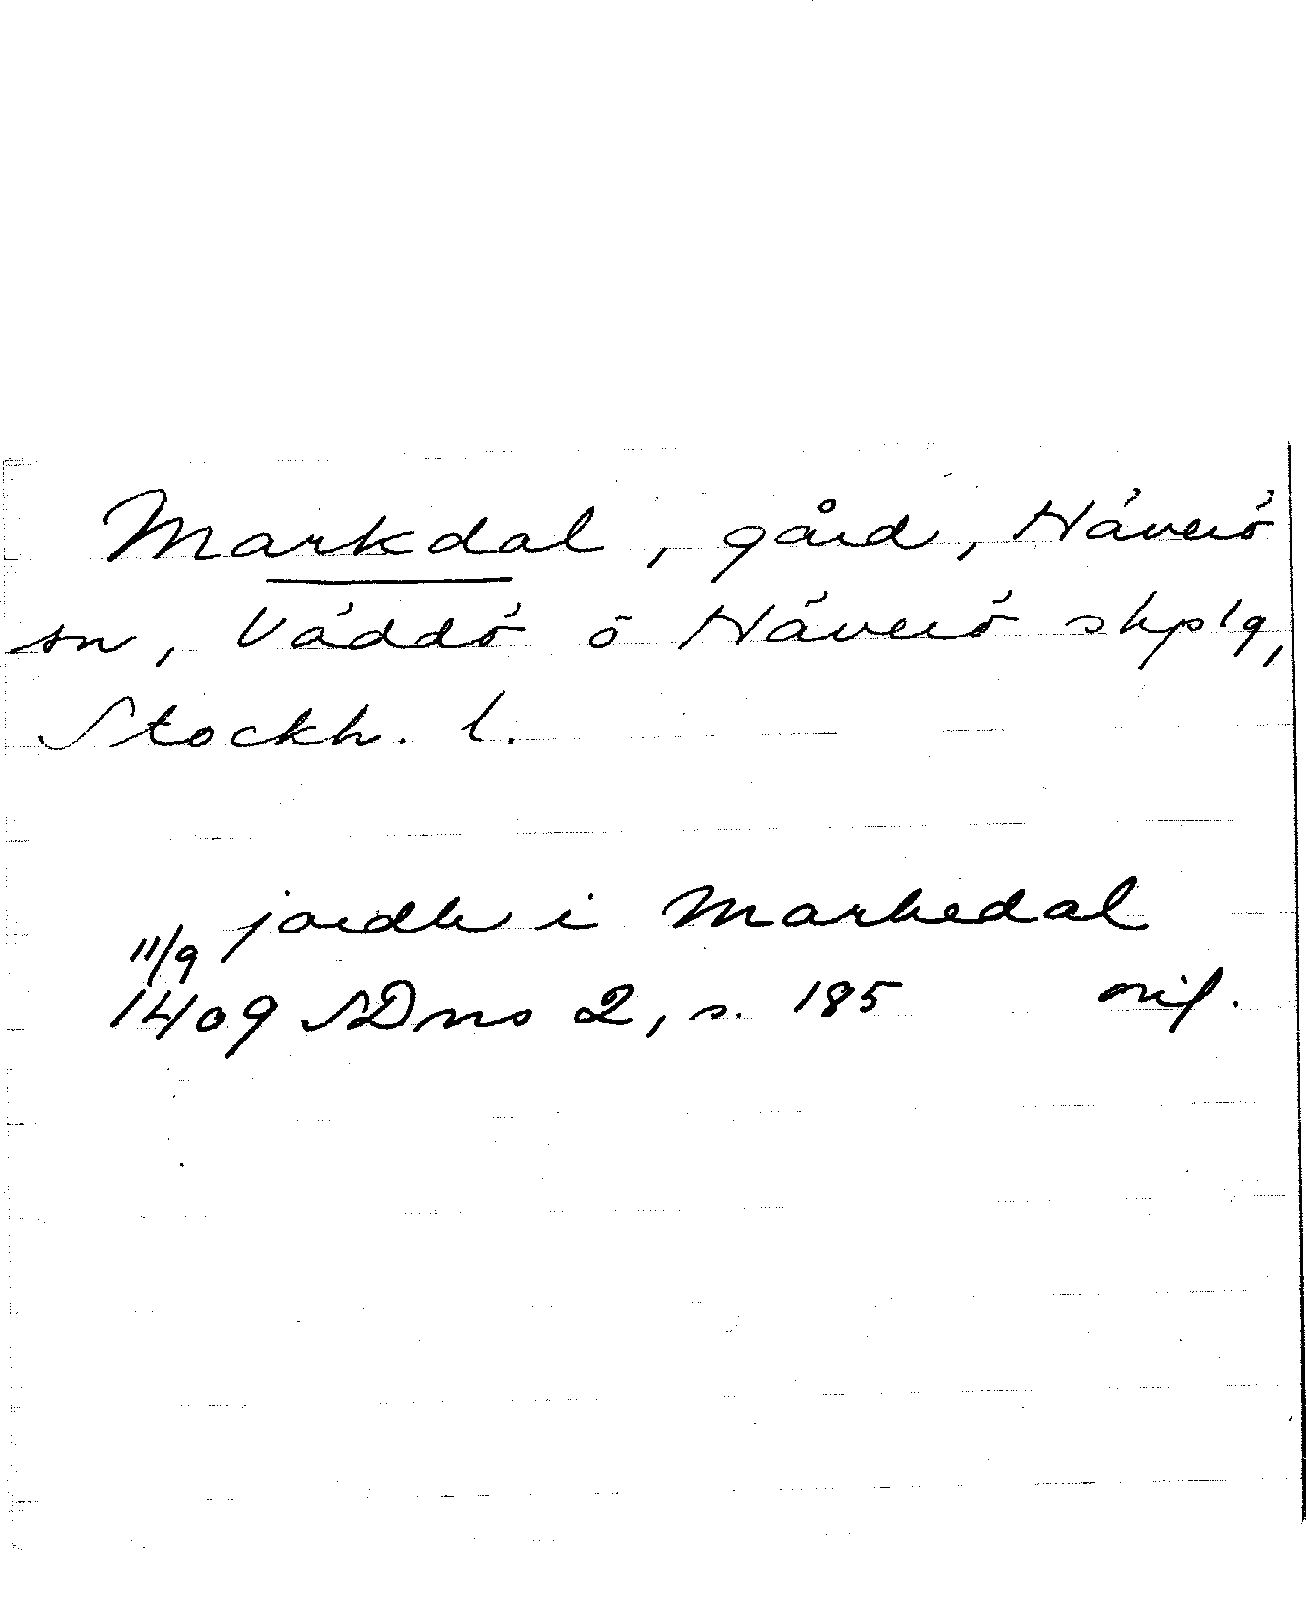 Markdal, gård, Häverö
sn, Väddö o Häverö skplg,
Stockh. l.
jordh i Markedal
11/9
1409 SDns 2, s. 185 orig.